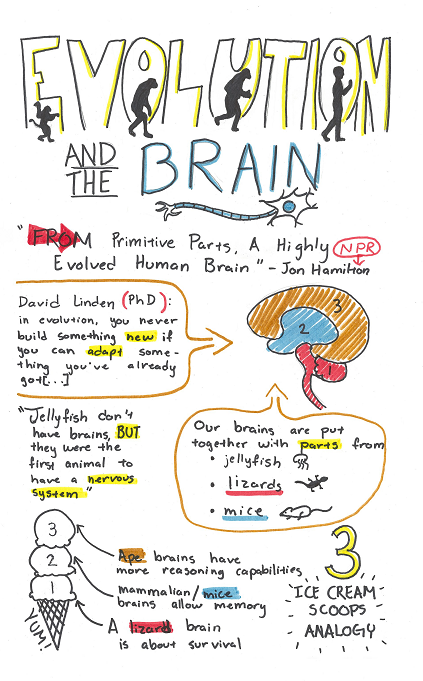 EVOLUTION
AND THE BRAIN
"FROM Primitive Parts, A Highly
Evolved Human Brain" - Jon Hamilton
NPR
David Linden (PhD):
in evolution, you never
build something new if
you can adapt some-
thing you've already
got[...]
3
2
1
"Jellyfish don't
have brains, BUT
they were the
first animal to
have a nervous
system"
Our brains are put
together with parts from
• jellyfish
• lizards
• mice
3
2
1
YUM!
Ape brains have
more reasoning capabilities
mammalian/mice
brains allow memory
A lizard brain
is about survival
3
ICE CREAM
SCOOPS
ANALOGY